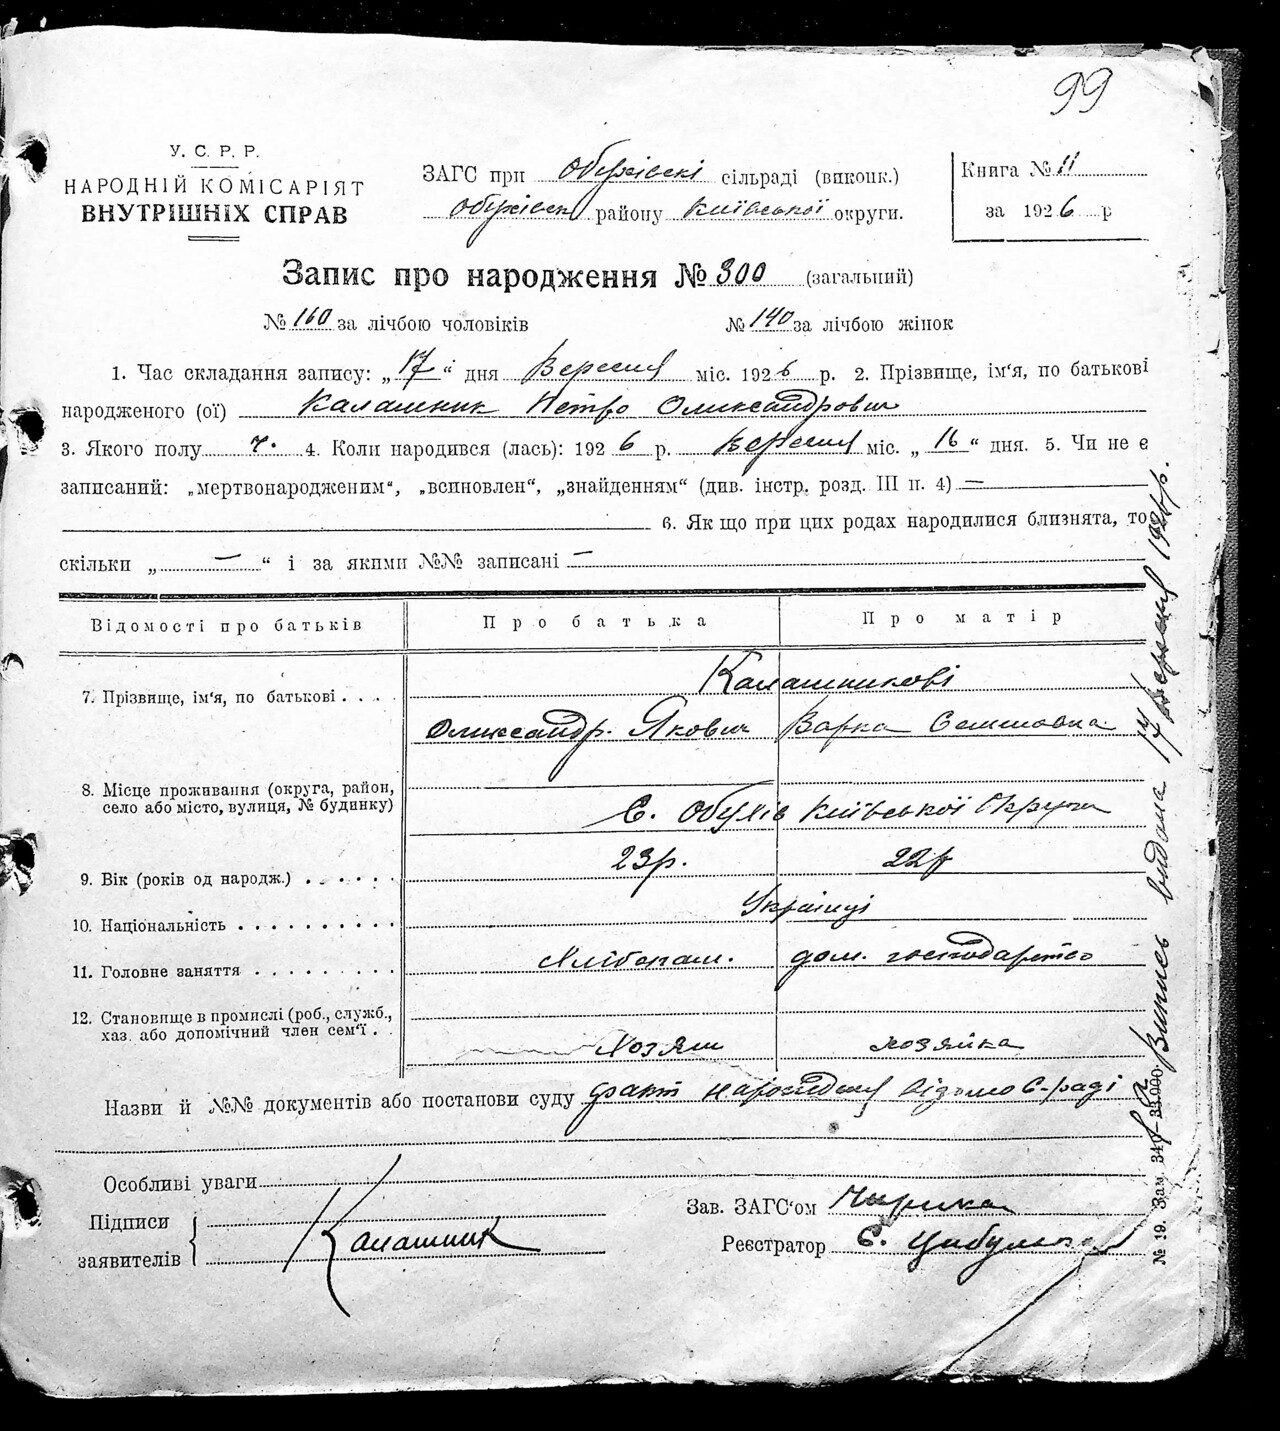 99
У. С. Р. Р.
НАРОДНІЙ КОМІСАРІЯТ
ВНУТРІШНІХ СПРАВ
ЗАГС при Обухівскі сільраді (виконк.)
Обухівск району Київської округи.
Книга № 11
за 1926 р
Запис про народження № 300 (загальний)
№ 160 за лічбою чоловіків № 140 за лічбою жінок
1. Час складання запису: „17“ дня Вересня міс. 1926 р. 2. Прізвище, ім'я, по батькові
народженого (ої) Калашник Петро Олександрович
3. Якого полу ч. 4. Коли народився (лась): 1926 р. Вересня міс. „16“ дня. 5. Чи не є
записаний: „мертвонародженим“, „всиновлен“, „знайденням“ (див. інстр. розд. III п. 4) —
6. Як що при цих родах народилися близнята, то
скільки „—“ і за якими №№ записані —
Відомості про батьків Про батька Про матір
7. Прізвище, ім'я, по батькові . . . . Калашникові
Олександр. Якович Варка Семеновна
8. Місце проживання (округа, район,
село або місто, вулиця, № будинку)
С. Обухів Київської Округи
9. Вік (років од народж.) . . . . . . 23р. 22р
10. Національність . . . . . . . . . . Українці
11. Головне заняття . . . . . . . . . Хлібопаш. дом. господарство
12. Становище в промислі (роб., служб.,
хаз. або допомічний член сем'ї . .
Хозяин хозяйка
Назви й №№ документів або постанови суду факт народження відомо С-раді
Особливі уваги
Підписи
заявителів
Калашник
Зав. ЗАГС'ом
Реєстратор Є. Цибулько
Випись видана 17 вересня 1926р.
№ 19. Зам.